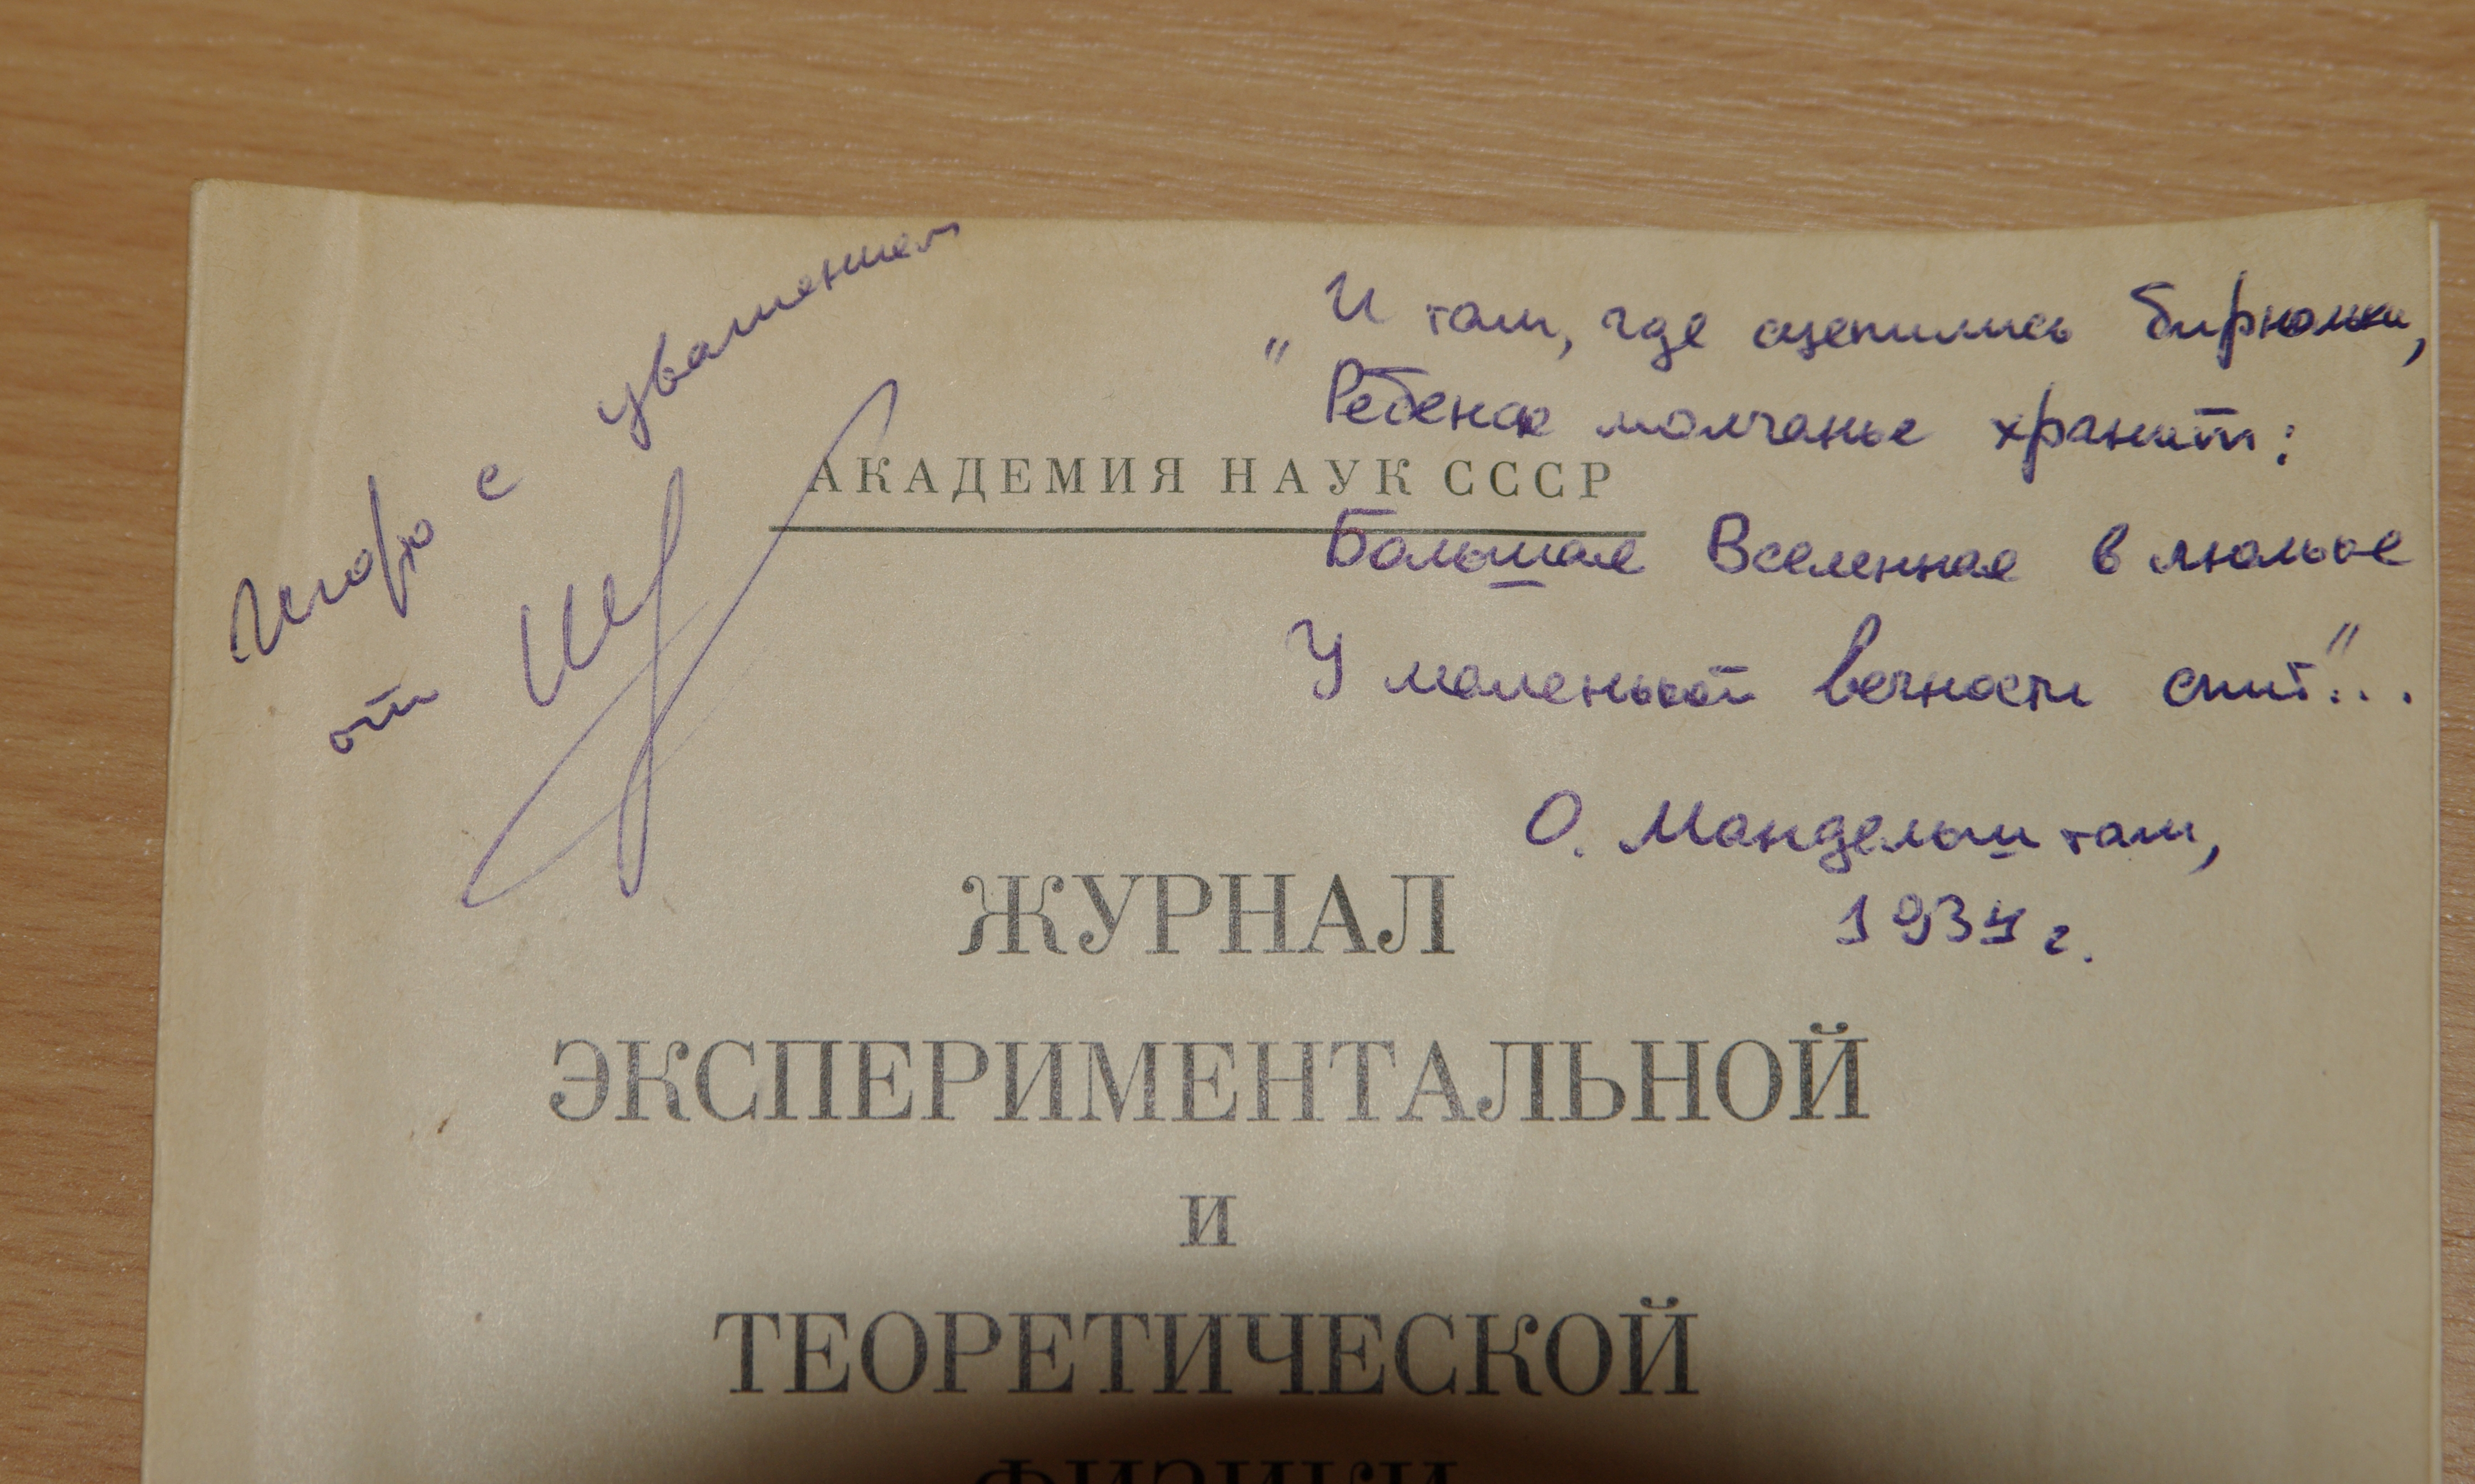 Игорю с уважением
от
"И там, где сцепились бирюльки,
Ребенок молчанье хранит:
Большая Вселенная в люльке
У маленькой вечности спит"...
О. Мандельштам,
1934 г.
АКАДЕМИЯ НАУК СССР
ЖУРНАЛ
ЭКСПЕРИМЕНТАЛЬНОЙ
И
ТЕОРЕТИЧЕСКОЙ
ФИЗИКИ